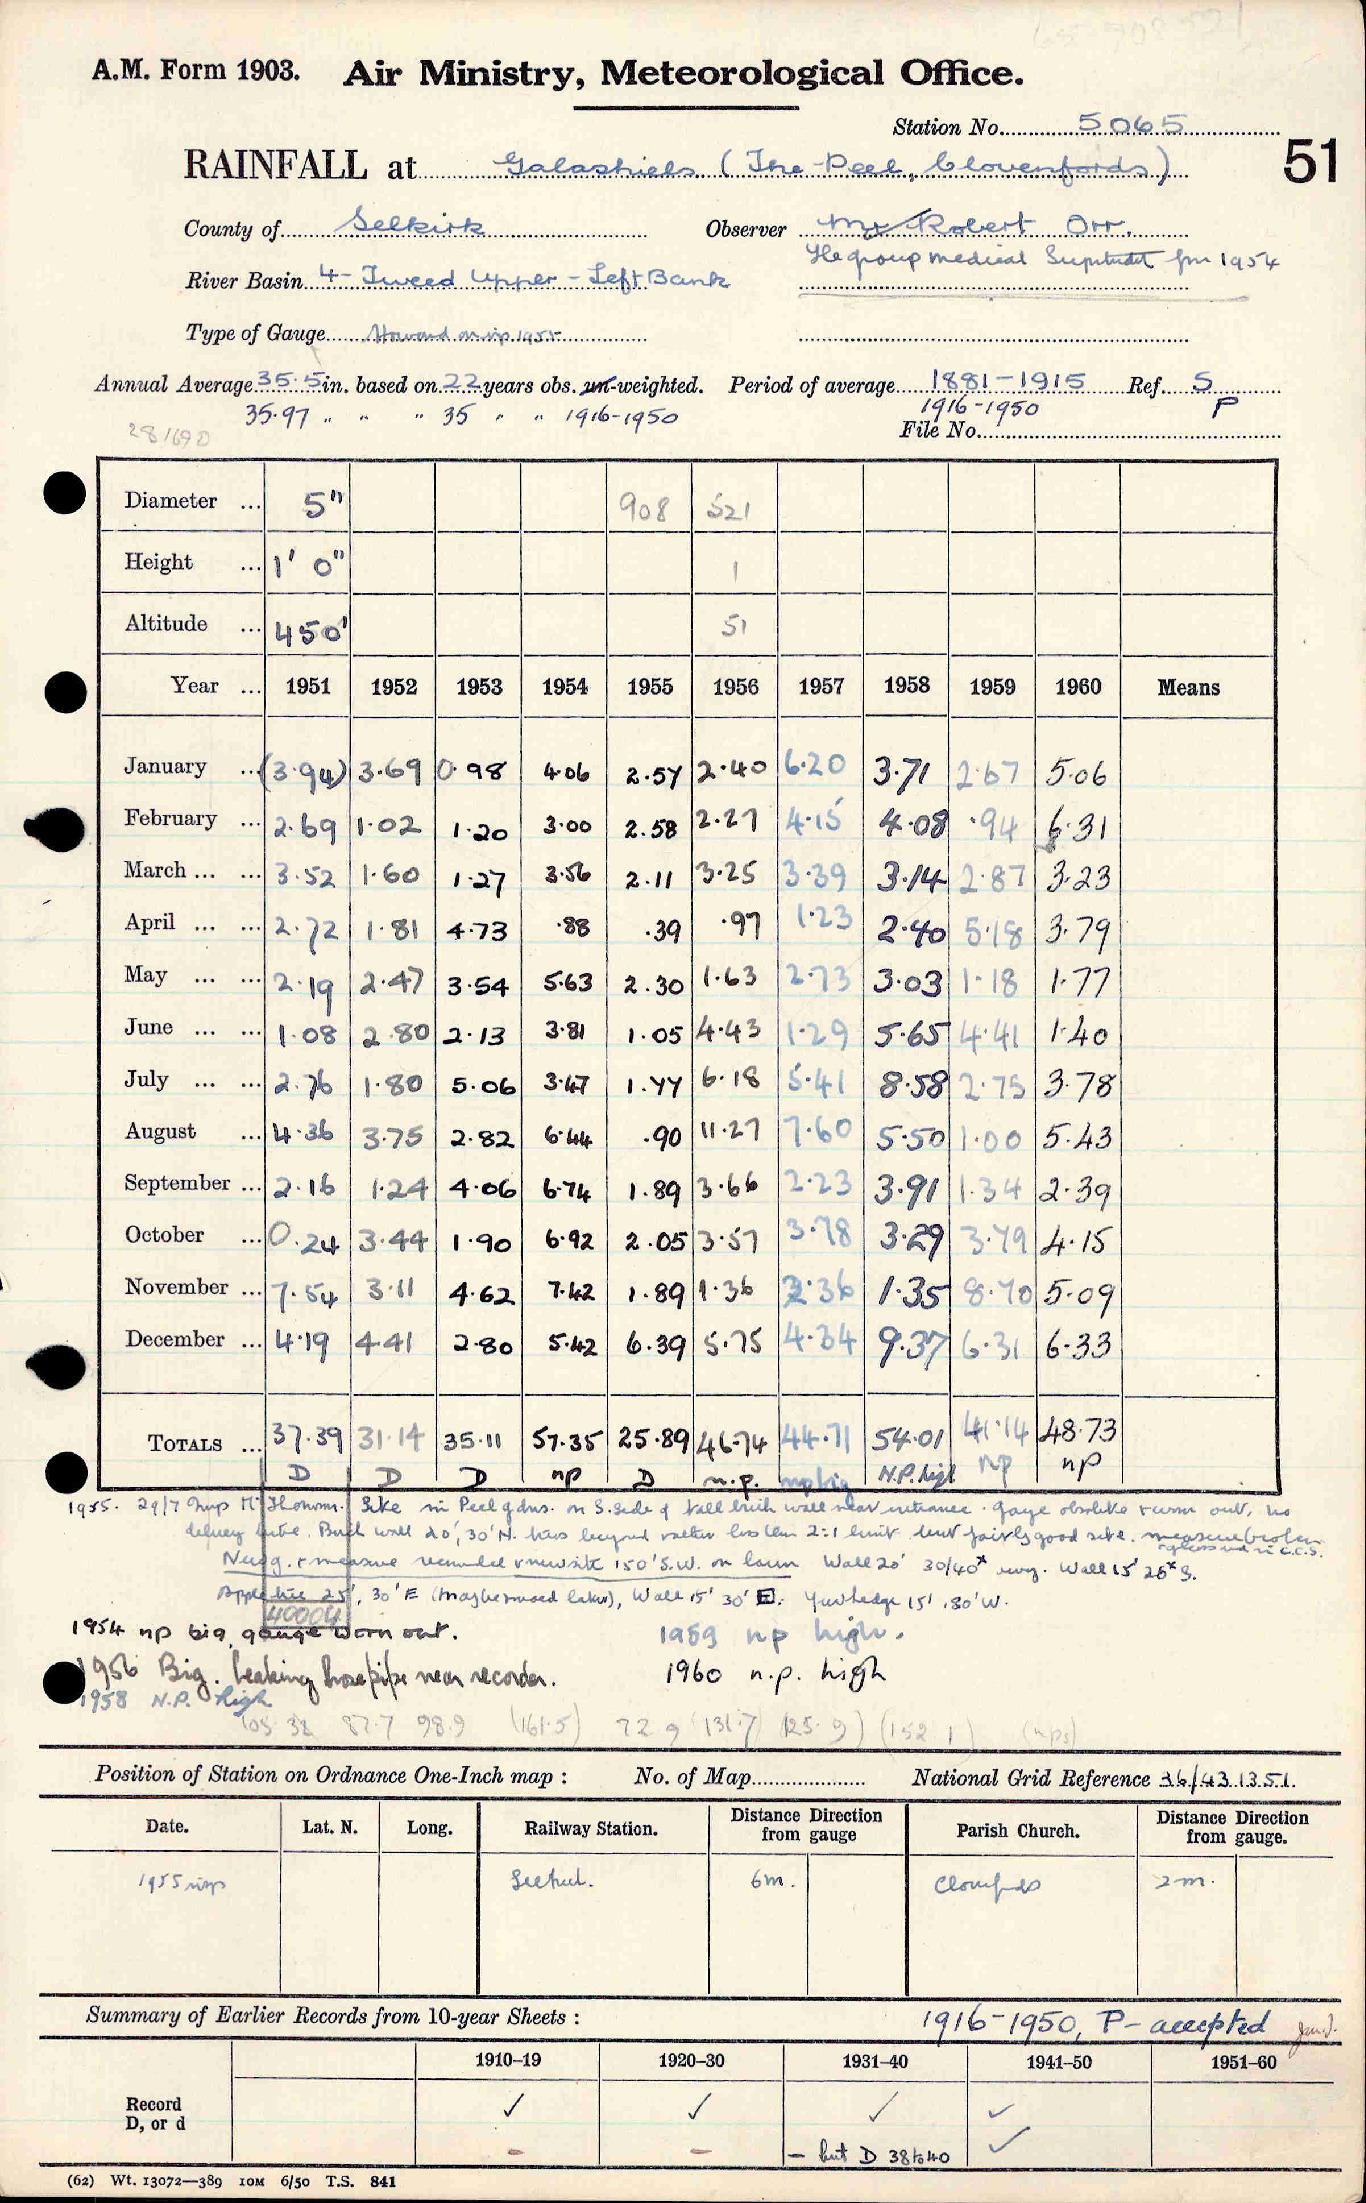 A.M. Form 1903. Air Ministry, Meteorological Office.
Station No. 5065
RAINFALL at Galashiels (The Peel, Clovenfords) 51
County of Selkirk Observer Mr Robert Orr.
The group medical fm 1954
River Basin 4 - Tweed Upper - Left Bank
Type of Gauge
Annual Average 35.5 in. based on 22 years obs. un-weighted. Period of average 1881-1915 Ref. S
35.97 " " " 35 " " 1916-1950 1916-1950 P
28/690 File No.
Diameter ... 5" 908 521
Height ... 1' 0" 1
Altitude ... 450' 51
Year ... 1951 1952 1953 1954 1955 1956 1957 1958 1959 1960 Means
January ... (3.94) 3.69 0.98 4.06 2.57 2.40 6.20 3.71 2.67 5.06
February ... 2.69 1.02 1.20 3.00 2.58 2.27 4.15 4.08 .94 6.31
March ... ... 3.52 1.60 1.27 3.56 2.11 3.25 3.39 3.14 2.87 3.23
April ... ... 2.72 1.81 4.73 .88 .39 .97 1.23 2.40 5.18 3.79
May ... ... 2.19 2.47 3.54 5.63 2.30 1.63 2.73 3.03 1.18 1.77
June ... ... 1.08 2.80 2.13 3.81 1.05 4.43 1.29 5.65 4.41 1.40
July ... ... 2.76 1.80 5.06 3.47 1.77 6.18 5.41 8.58 2.75 3.78
August ... 4.36 3.75 2.82 6.44 .90 11.27 7.60 5.50 1.00 5.43
September ... 2.16 1.24 4.06 6.74 1.89 3.66 2.23 3.91 1.34 2.39
October ... 0.24 3.44 1.90 6.92 2.05 3.57 3.78 3.29 3.79 4.15
November ... 7.54 3.11 4.62 7.42 1.89 1.36 2.36 1.35 8.70 5.09
December ... 4.19 4.41 2.80 5.42 6.39 5.75 4.34 9.37 6.31 6.33
TOTALS ... 37.39 31.14 35.11 57.35 25.89 46.74 44.71 54.01 41.14 48.73
D D D np D n.p. np big N.P. high np np
1955. 29/7 Insp Site in Peel gdns. on S. side of tall brick wall near entrance. Gauge obsolete & worn out, no
20', 30' N. less than 2:1 limit but fairly good site. measure broken
New g. & measure needed & new site 150' S.W. on lawn Wall 20' 30/40 away. Wall 15' 25 S.
Apple tree 25', 30' E (maybe moved later), Wall 15' 30' E. Yew hedge 15', 80' W.
40004
1954 np big, gauge worn out. 1959 np high.
1956 Big. leaking hosepipe near recorder. 1960 n.p. high
1958 N.P. High
105.32 87.7 98.9 (161.5) 72.9 (131.7) (125.9) (152.1) (nps)
Position of Station on Ordnance One-Inch map : No. of Map National Grid Reference 36/431351.
Date. Lat. N. Long. Railway Station. Distance Direction from gauge Parish Church. Distance Direction from gauge.
1955 insp 6m. 2m.
Summary of Earlier Records from 10-year Sheets : 1916-1950, P - accepted
1910-19 1920-30 1931-40 1941-50 1951-60
Record ✓ ✓ ✓ ✓
D, or d - - - but D 38 to 40 ✓
(62) Wt. 13072—389 10M 6/50 T.S. 841